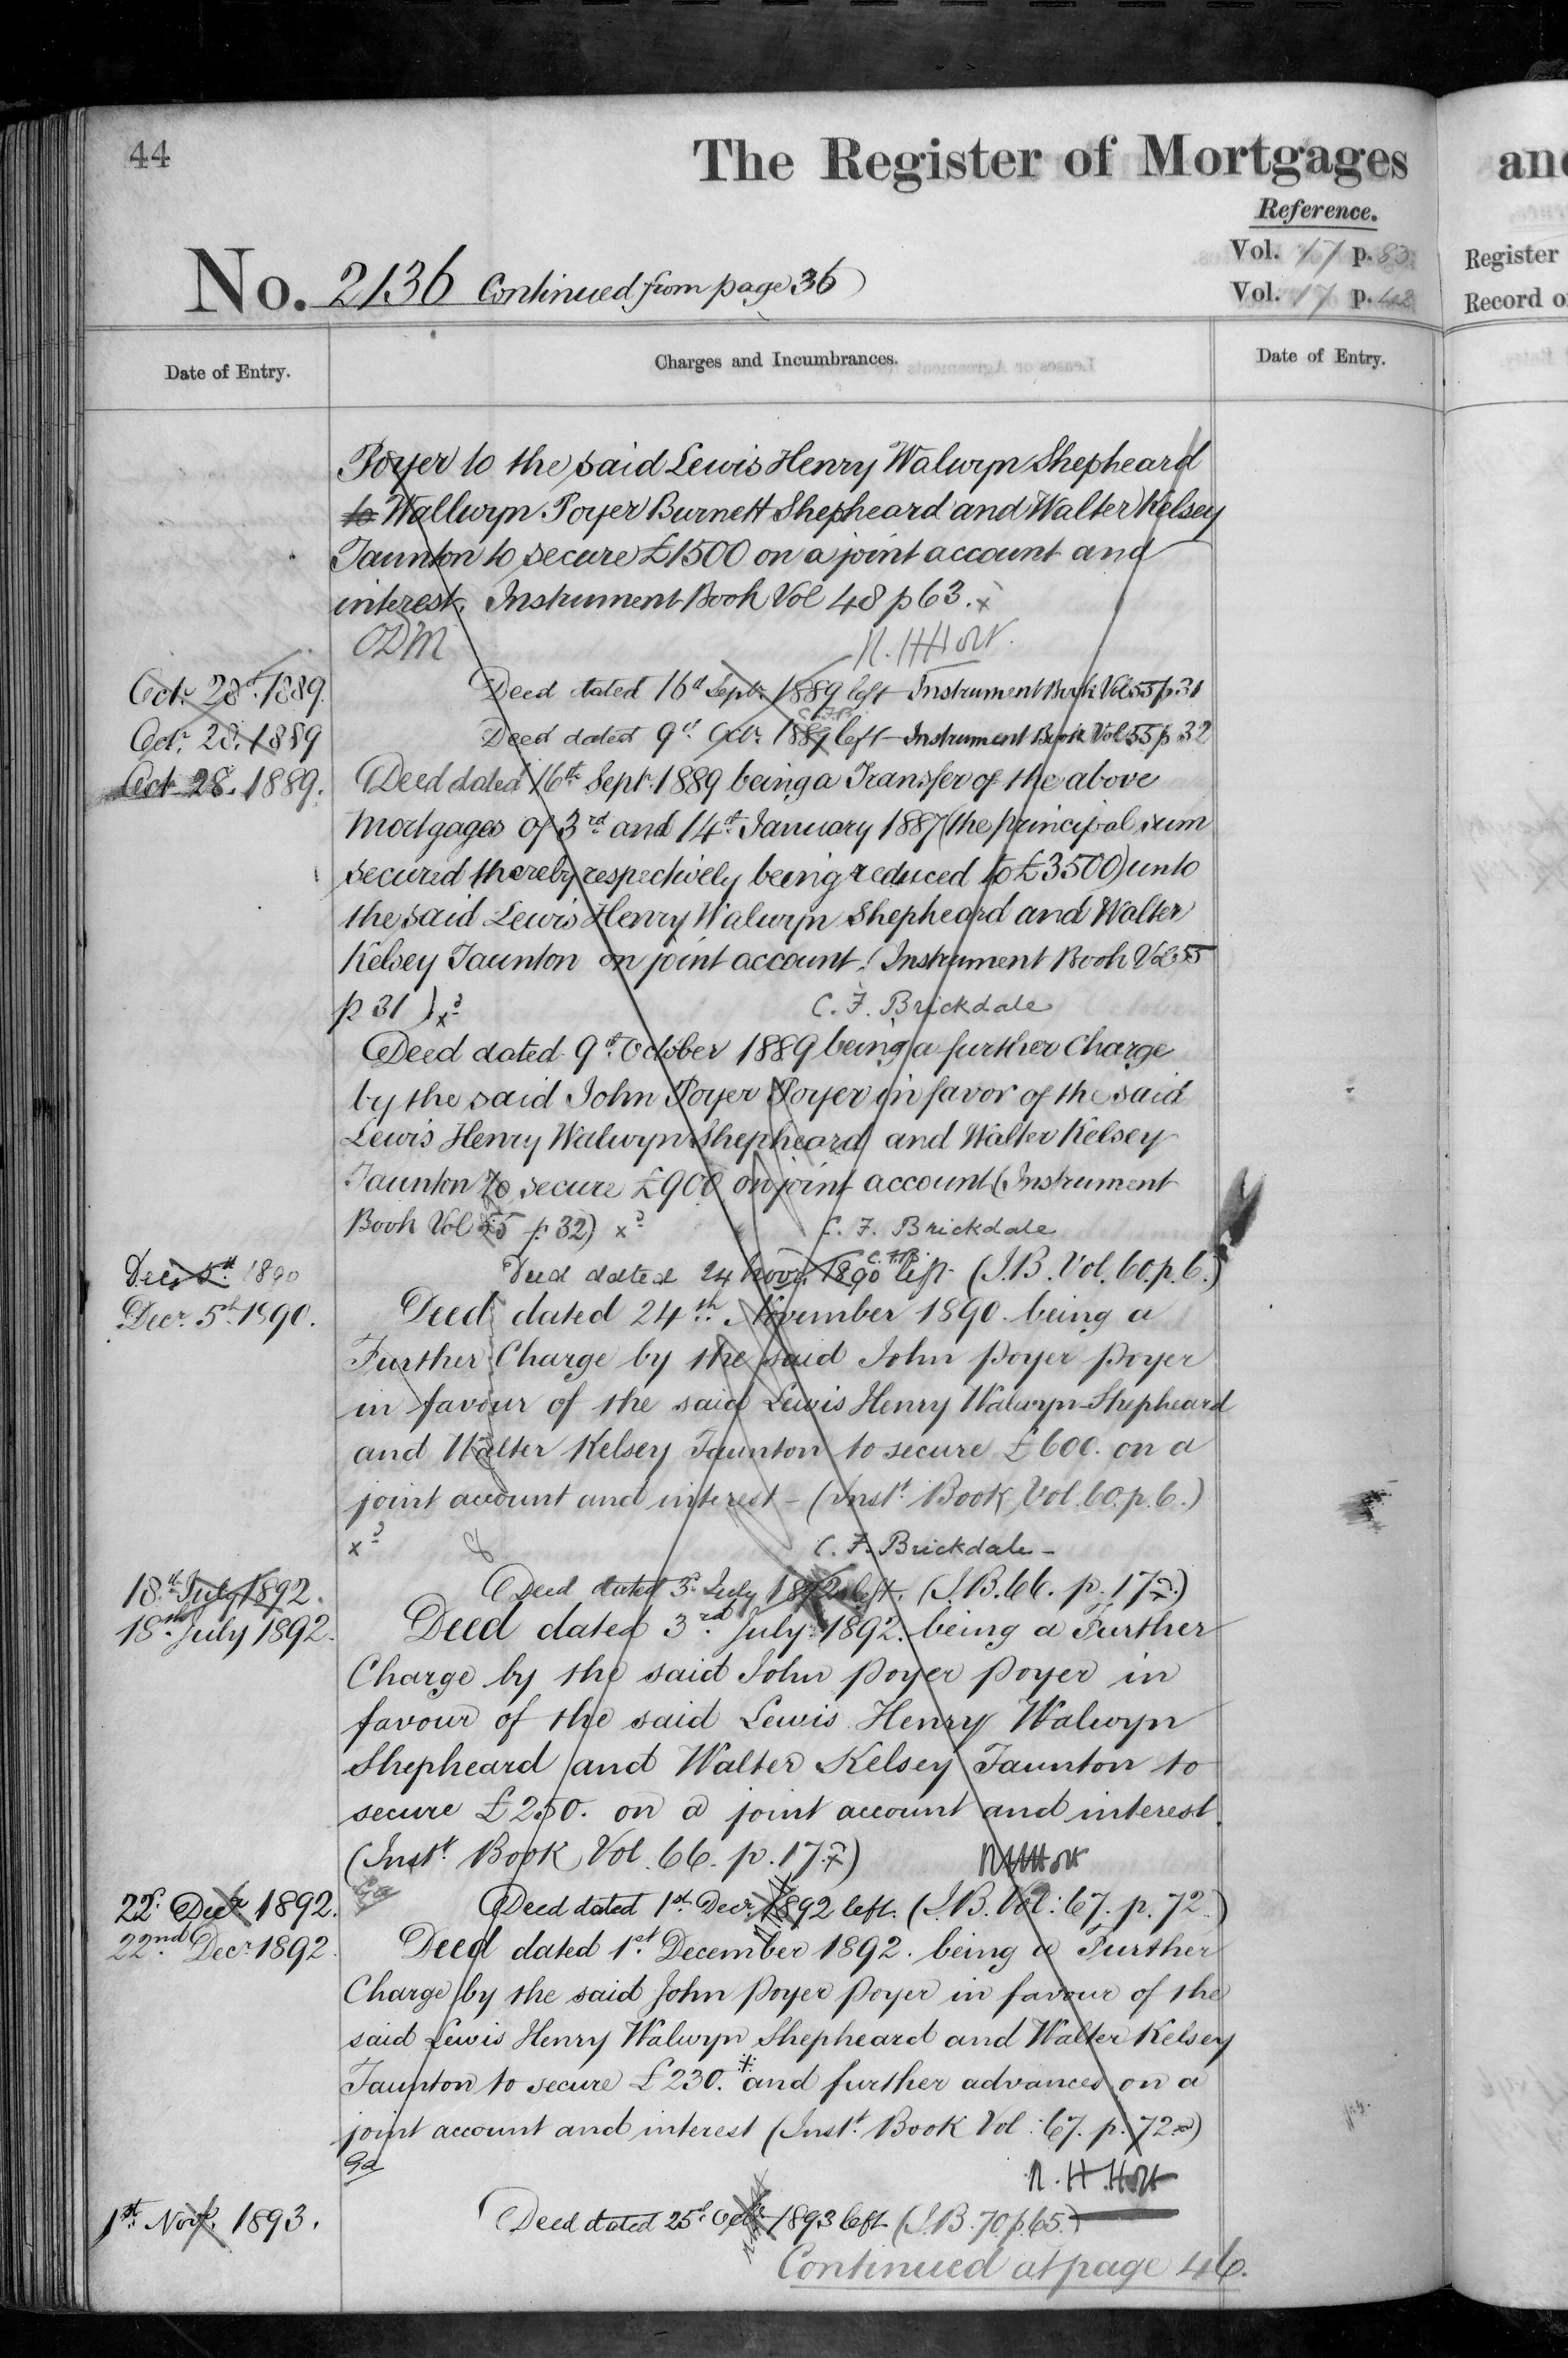 44
The Register of Mortgages
and
Reference.
Vol. 17 p. 83
Vol. 17 p. 42
Register
Record o
No. 2136 Continued from page 36
Date of Entry.
Charges and Incumbrances.
Date of Entry.
Poyer to the said Lewis Henry Walwyn Shepheard
to Wallwyn Poyer Burnett Shepheard and Walter Kelsey
Taunton to secure £1500 on a joint account and
interest. Instrument Book Vol 48 p 63. x
N. H. Hort.
Oct. 28th 1889. Deed dated 16th Sept. 1889 left Instrument Book Vol 55 p 31
C.F.B.
Oct. 28. 1889 Deed dated 9th Oct. 1889 left Instrument Book Vol 55 p 32
Oct 28. 1889. Deed dated 16th Sept. 1889 being a Transfer of the above
Mortgages of 3rd and 14th January 1887 (the principal sum
secured thereby respectively being reduced to £3500) unto
the said Lewis Henry Walwyn Shepheard and Walter
Kelsey Taunton on joint account. (Instrument Book Vol 55
p 31) x
C. F. Brickdale
Deed dated 9th October 1889 being a further Charge
by the said John Poyer Poyer in favor of the said
Lewis Henry Walwyn Shepheard and Walter Kelsey
Taunton to secure £900 on joint account (Instrument
Book Vol 55 p. 32) x
C. F. Brickdale
C.F.B.
Dec. 5th 1890 Deed dated 24 Novr. 1890 left (I.B. Vol. 60. p. 6.)
Decr. 5th 1890. Deed dated 24th November 1890 being a
Further Charge by the said John Poyer Poyer
in favour of the said Lewis Henry Walwyn Shepheard
and Walter Kelsey Taunton to secure £600. on a
joint account and interest - (Inst. Book Vol. 60. p. 6.)
x
C. F. Brickdale -
18th July 1892. Deed dated 3rd July 1892 left. (I.B. 66. p. 17x)
18th July 1892. Deed dated 3rd July 1892. being a Further
Charge by the said John Poyer Poyer in
favour of the said Lewis Henry Walwyn
Shepheard and Walter Kelsey Taunton to
secure £250. on a joint account and interest.
(Inst. Book Vol. 66. p. 17. x)
N. H. Hort
22d. Decr 1892. Deed dated 1st Decr. 1892 left. (I.B. Vol: 67. p. 72.)
22nd Decr 1892. Deed dated 1st December 1892. being a Further
Charge by the said John Poyer Poyer in favour of the
said Lewis Henry Walwyn Shepheard and Walter Kelsey
Taunton to secure £230. and further advances on a
joint account and interest (Inst. Book Vol: 67. p. 72 x)
N. H. Hort
1st Novr. 1893. Deed dated 25th Octr. 1893 left (I.B. 70. p. 65.)
Continued at page 46.